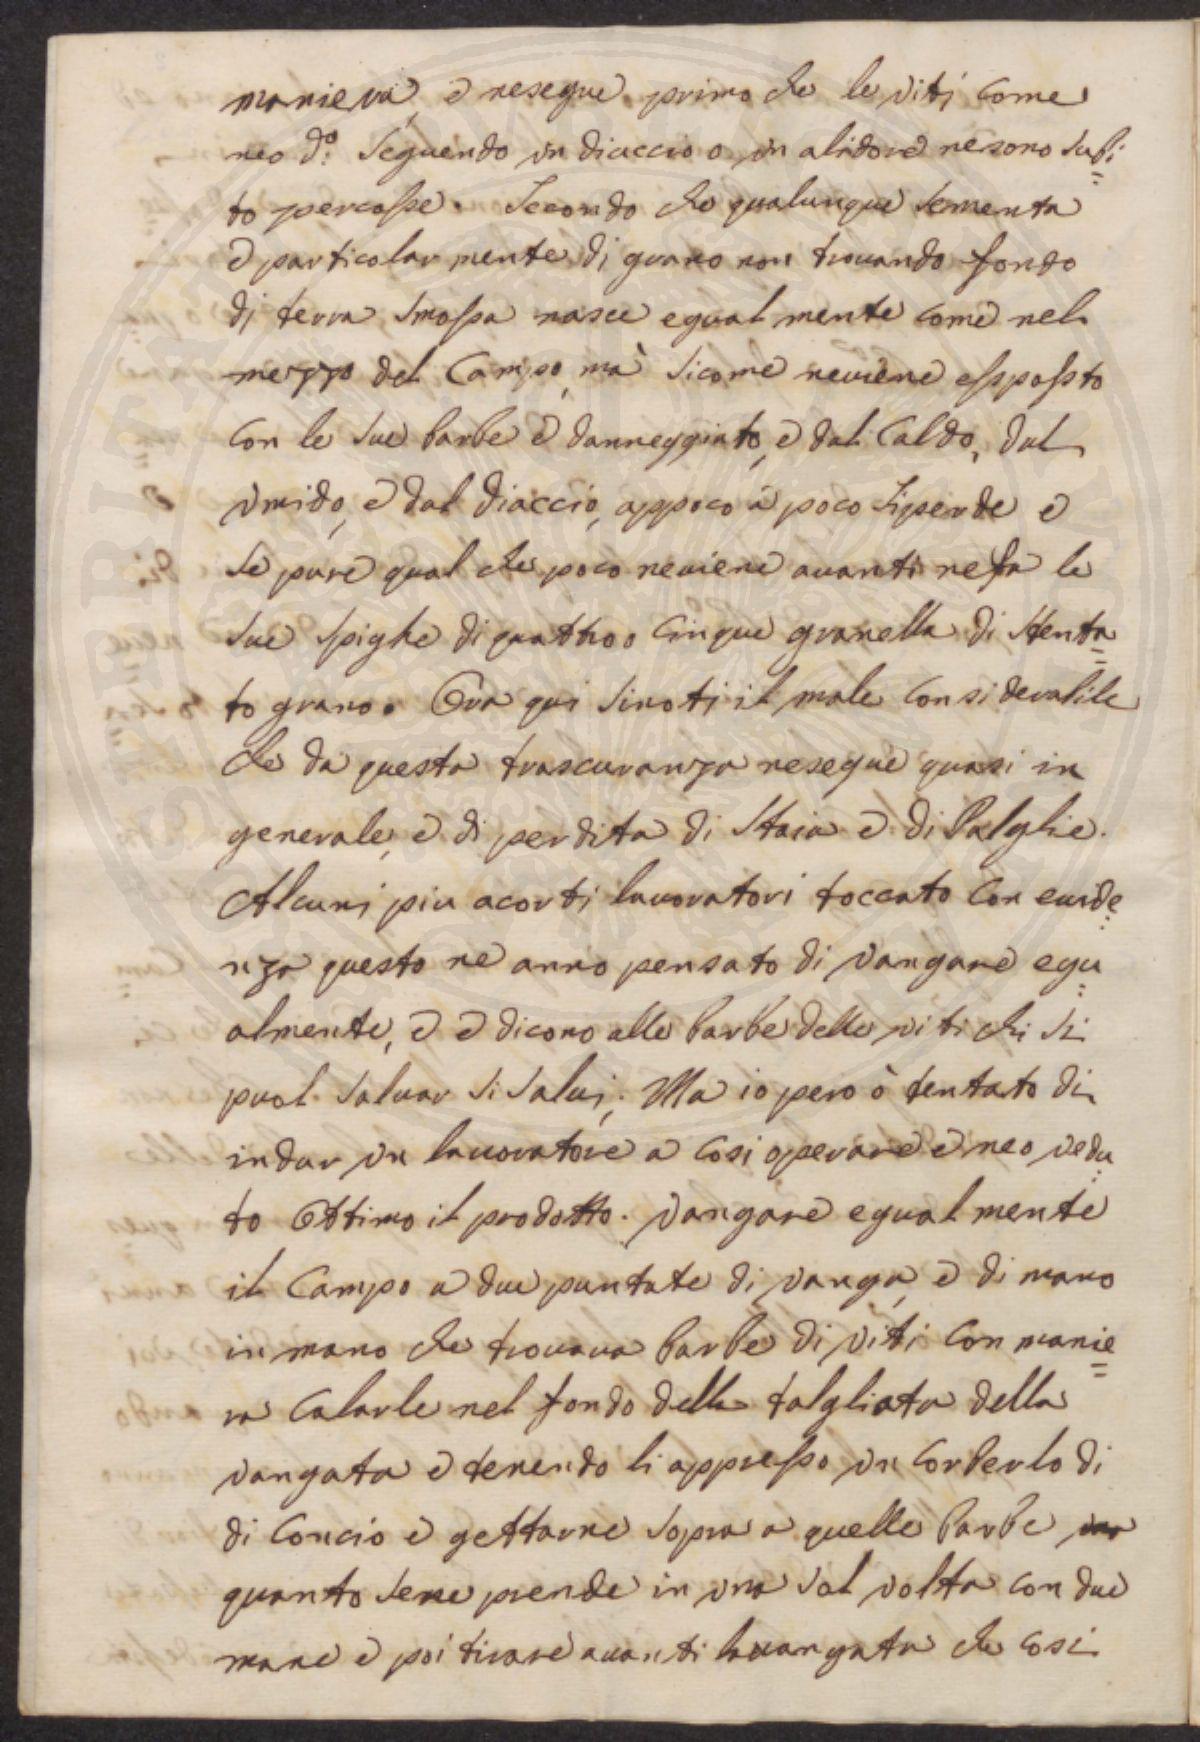 maniera, e nesegue. primo che le viti come
neo d.o Seguendo un diaccio o un alidore nesono subi=
to percosse. Secondo che qualunque sementa
e particolar mente di grano non trovando fondo
di terra smossa nasce egual mente come nel
mezzo del Campo, ma sicome neviene essposto
con le sue barbe e danneggiato, e dal Caldo, dal
umido, e dal diaccio, appoco a poco siperde e
se pure qual che poco neviene avanti nefa le
sue spighe di quattro o cinque granella di stenta=
to grano. Ora qui sinoti il male considerabile
che da questa trascuranza nesegue quasi in
generale, e di perdita di Staia e di Palglie.
Alcuni piu acorti lavoratori toccato con evide=
nza questo ne anno pensato di vangare egu=
almente, e e dicono alle barbe delle viti chi si
puol salvar si salvi; Ma io pero ò tentato di
indur un lavoratore a cosi operare e neo vedu=
to Ottimo il prodotto. Vangare egual mente
il Campo a due puntate di vanga, e di mano
in mano che trovava barbe di viti con manie=
ra Calarle nel fondo della talgliata della
vangata e tenendo li appresso un Corberlo di
di Concio e gettarne sopra a quelle barbe
quanto sene prende in una sol volta con due
mane e poi tirare avanti lavangata che cosi